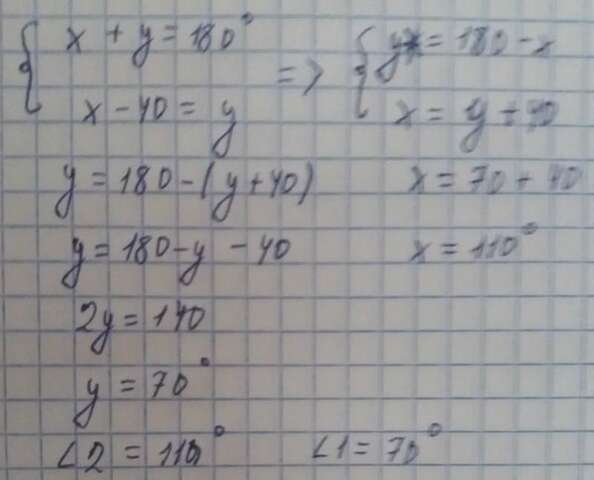 x + y = 180° => y = 180 - x
x - 40 = y x = y + 40
y = 180 - (y + 40) x = 70 + 40
y = 180 - y - 40 x = 110°
2y = 140
y = 70°
∠2 = 110° ∠1 = 70°